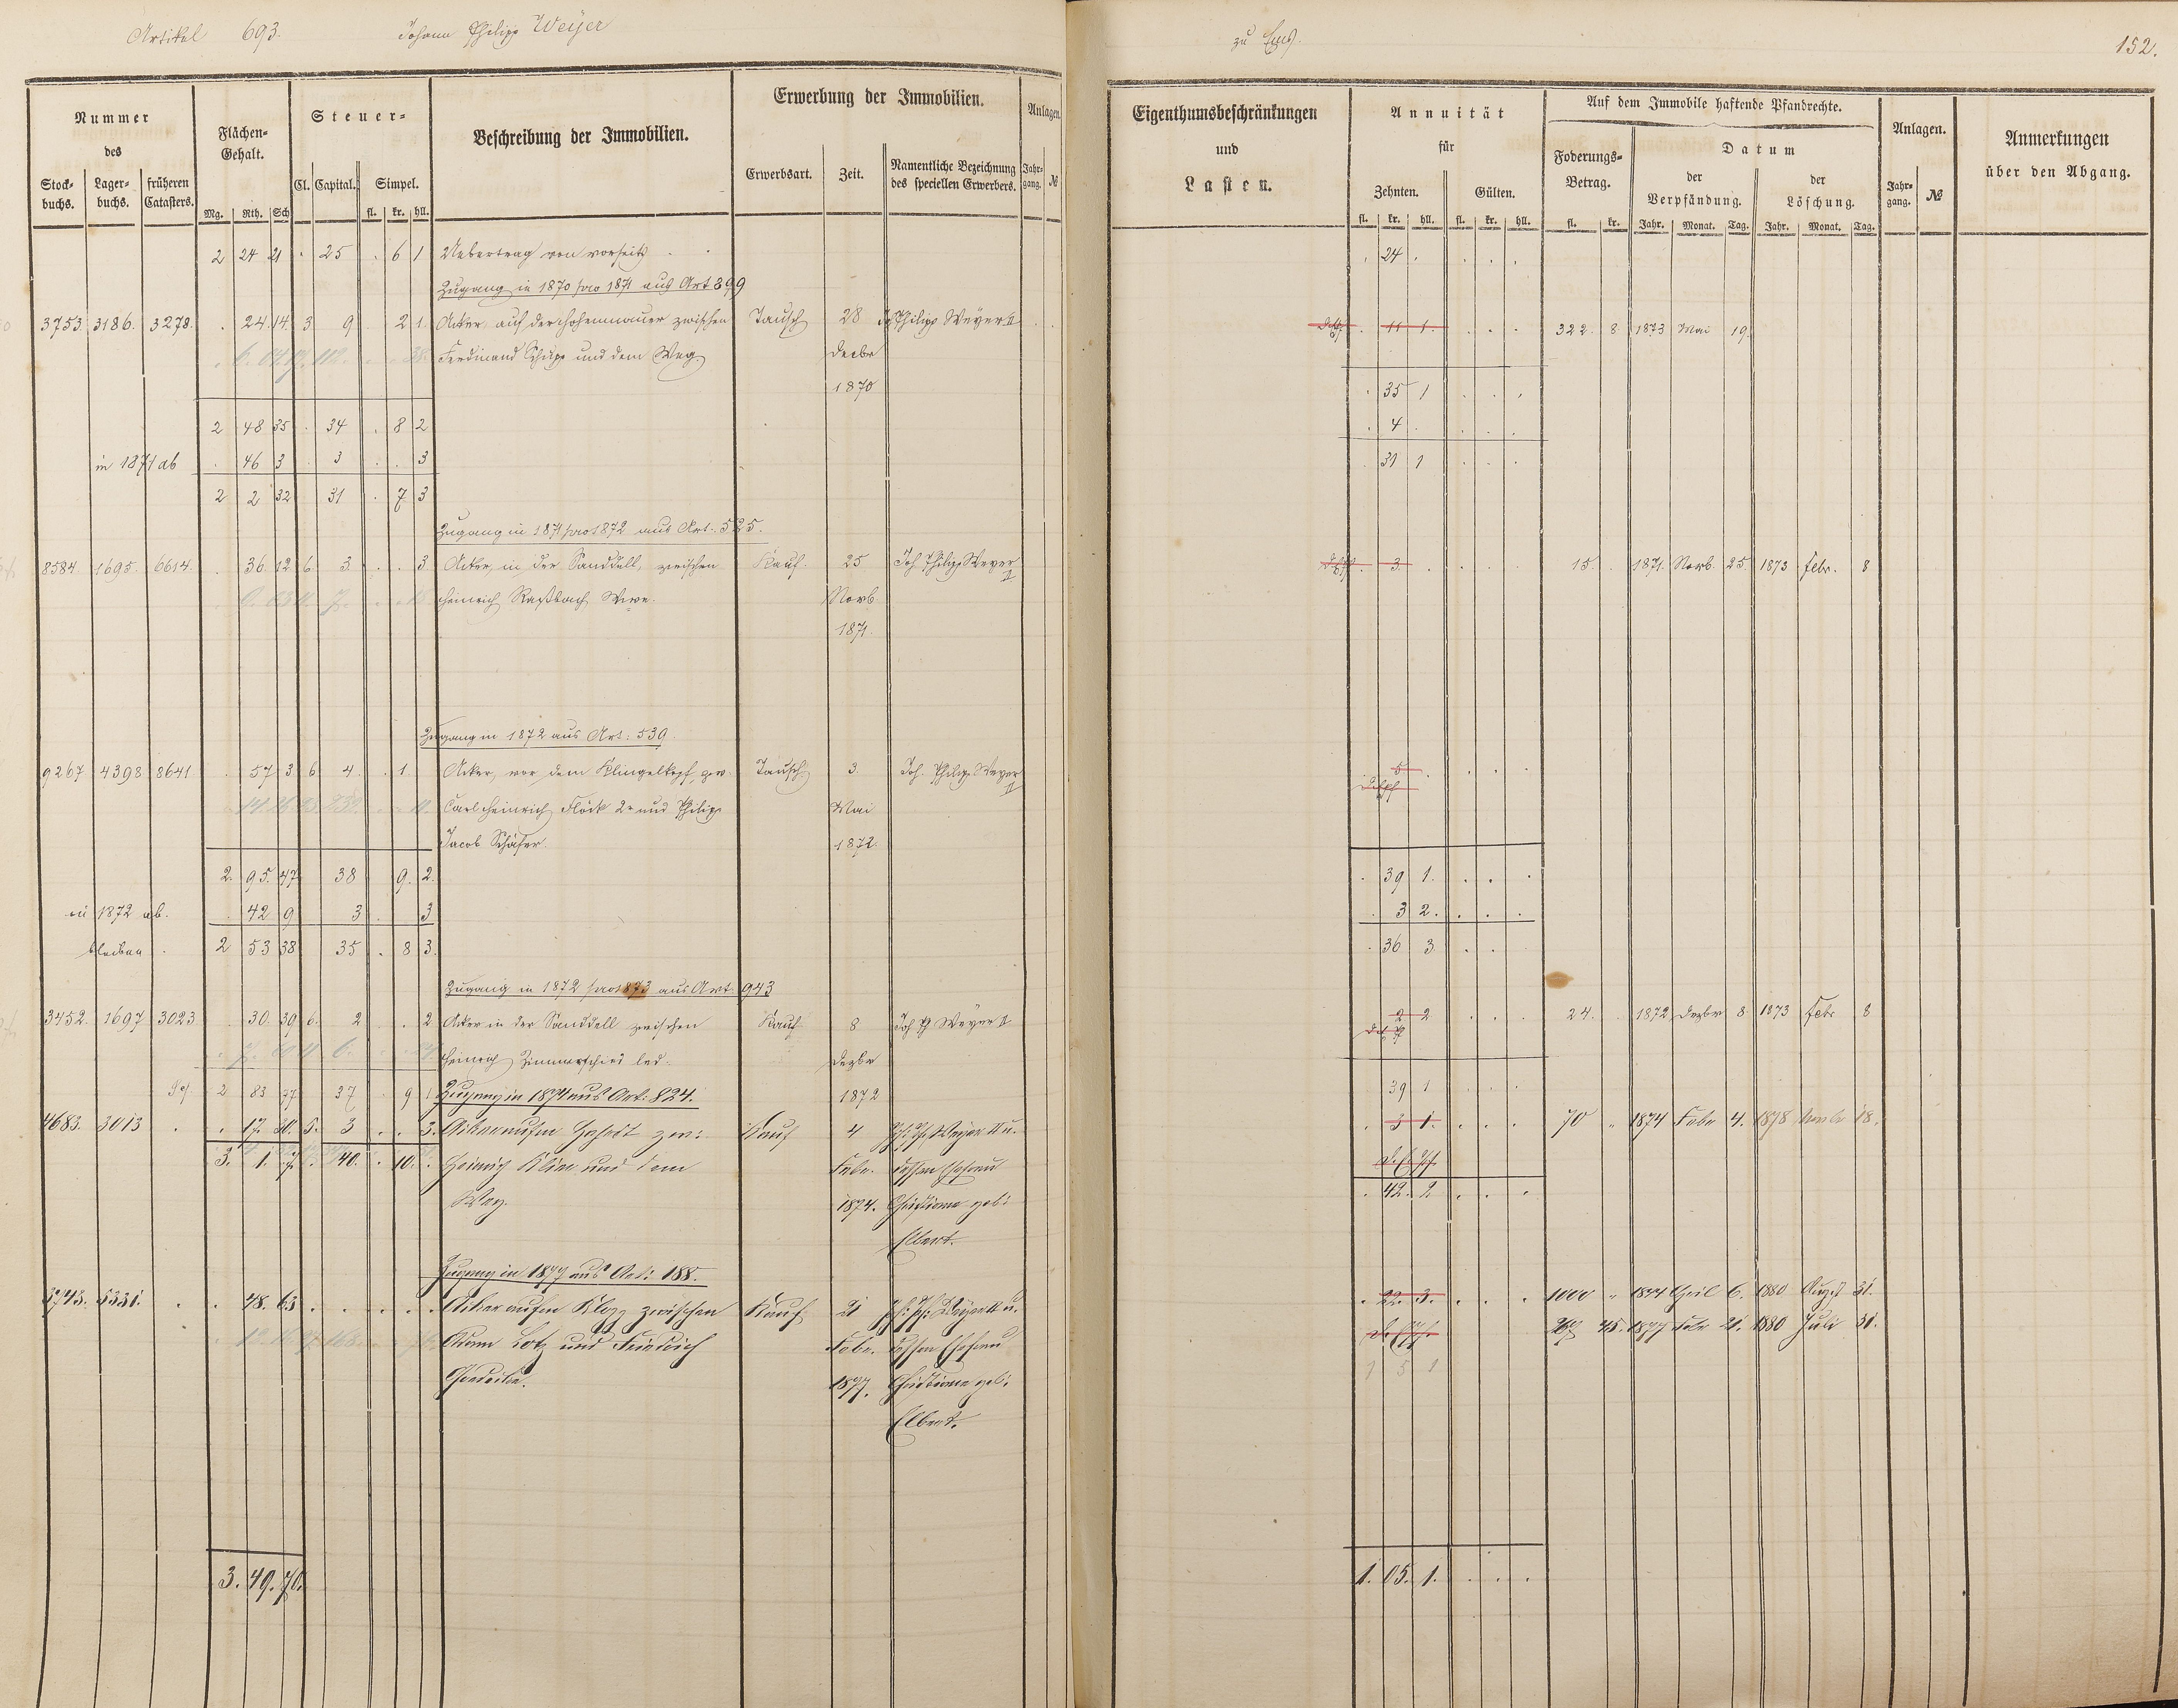 Artikel 693. Johann Philipp Weyer zu Ems. 152.
Nummer des
Stock-buchs. Lager-buchs. früheren Catasters.
Flächen-Gehalt.
Mg. Rth. Sch
Steuer-
Cl. Capital. Simpel.
fl. kr. hll.
Beschreibung der Immobilien.
Erwerbung der Immobilien.
Erwerbsart. Zeit. Namentliche Bezeichnung des speciellen Erwerbers.
Anlagen.
Jahr-gang. №
Eigenthumsbeschränkungen
und
Lasten.
Annuität
für
Zehnten. Gülten.
fl. kr. hll. fl. kr. hll.
Auf dem Immobile haftende Pfandrechte.
Foderungs-Betrag.
fl. kr.
Datum
der Verpfändung. der Löschung.
Jahr. Monat. Tag. Jahr. Monat. Tag.
Anlagen.
Jahr-gang. №
Anmerkungen
über den Abgang.
2 24 21 . 25 . 6 1 Uebertrag von vorseits . 24 .
Zugang in 1870 pro 1871 aus Art 399
3753. 3186. 3278. . 24. 14. 3 9 2 1. Acker auf der Hohenmauer zwischen Tausch 28 Joh Philipp Weyer II . 11 1. 322. 8 1873 Mai 19.
Ferdinand Schupp und dem Weg. Decbr
1870 . 35 1
2 48 35 . 34 . 8 2 . 4 .
in 1871 ab . 46 3 . 3 . . 3 . 31 1
2 2 32 31 . 7 3
Zugang in 1871 pro 1872 aus Art. 525.
8584. 1695. 6614. . 36 12 6. 3. . . 3 Acker, in der Sanddell, zwischen Kauf. 25 Joh Philipp Weyer II . 3. 15. . 1871. Novb. 25. 1873 Febr. 8
Heinrich Raßbach Wwe. Novb
1871.
Zugang in 1872 aus Art: 539.
9267 4398 8641 . 57 3 6 4. . 1. Acker, vor dem Klingelkopf, zw. Tausch 3. Joh. Philipp Weyer II . 5 .
Carl Heinrich Flöck 2r und Philipp Mai
Jacob Schäfer. 1872.
2. 95. 47 38 9. 2. . 39 1.
in 1872 ab. . 42 9 3 . 3 . 3 2.
bleiben . 2 53 38 35 . 8 3. . 36 3
Zugang in 1872 pro 1873 aus Art. 943
3452. 1697 3023 . 30. 39 6. 2 . . 2 Acker in der Sanddell zwischen Kauf 8 Joh Ph Weyer II 2 2 24. . 1872 Dezbr 8 1873 Febr 8
Heinrich Zimmerschied led. Dezbr
2 83 77 37 . 9 1 Zugang in 1874 aus Art: 824. 1872 39 1
4683. 3013 . . 17. 30. 5. 3 . . 3. Acker aufm Hahert zw: Kauf 4 Joh: Ph: Weyer II u. . 3 1. 70 " 1874 Febr 4. 1878 18.
3. 1. 7. . 40. . 10. . Heinrich Klein und dem Febr. dessen Ehefrau
Weg. 1874. Christiane geb: . 42. 2
Elbert.
Zugang in 1877 aus Art: 188.
3743. 5331. . . 48. 63 . . . . . Acker aufm Klopp zwischen Kauf 21 Joh: Ph: Weyer II u. . 22. 3. 1000 " 1877 April 6. 1880 August 31.
Adam Lotz und Friedrich Febr. dessen Ehefrau 45. 1877 Febr 21. 1880 Juli 31.
1877. Christiane geb: 1 5 1
Elbert.
3. 49. 70. 1. 05. 1.